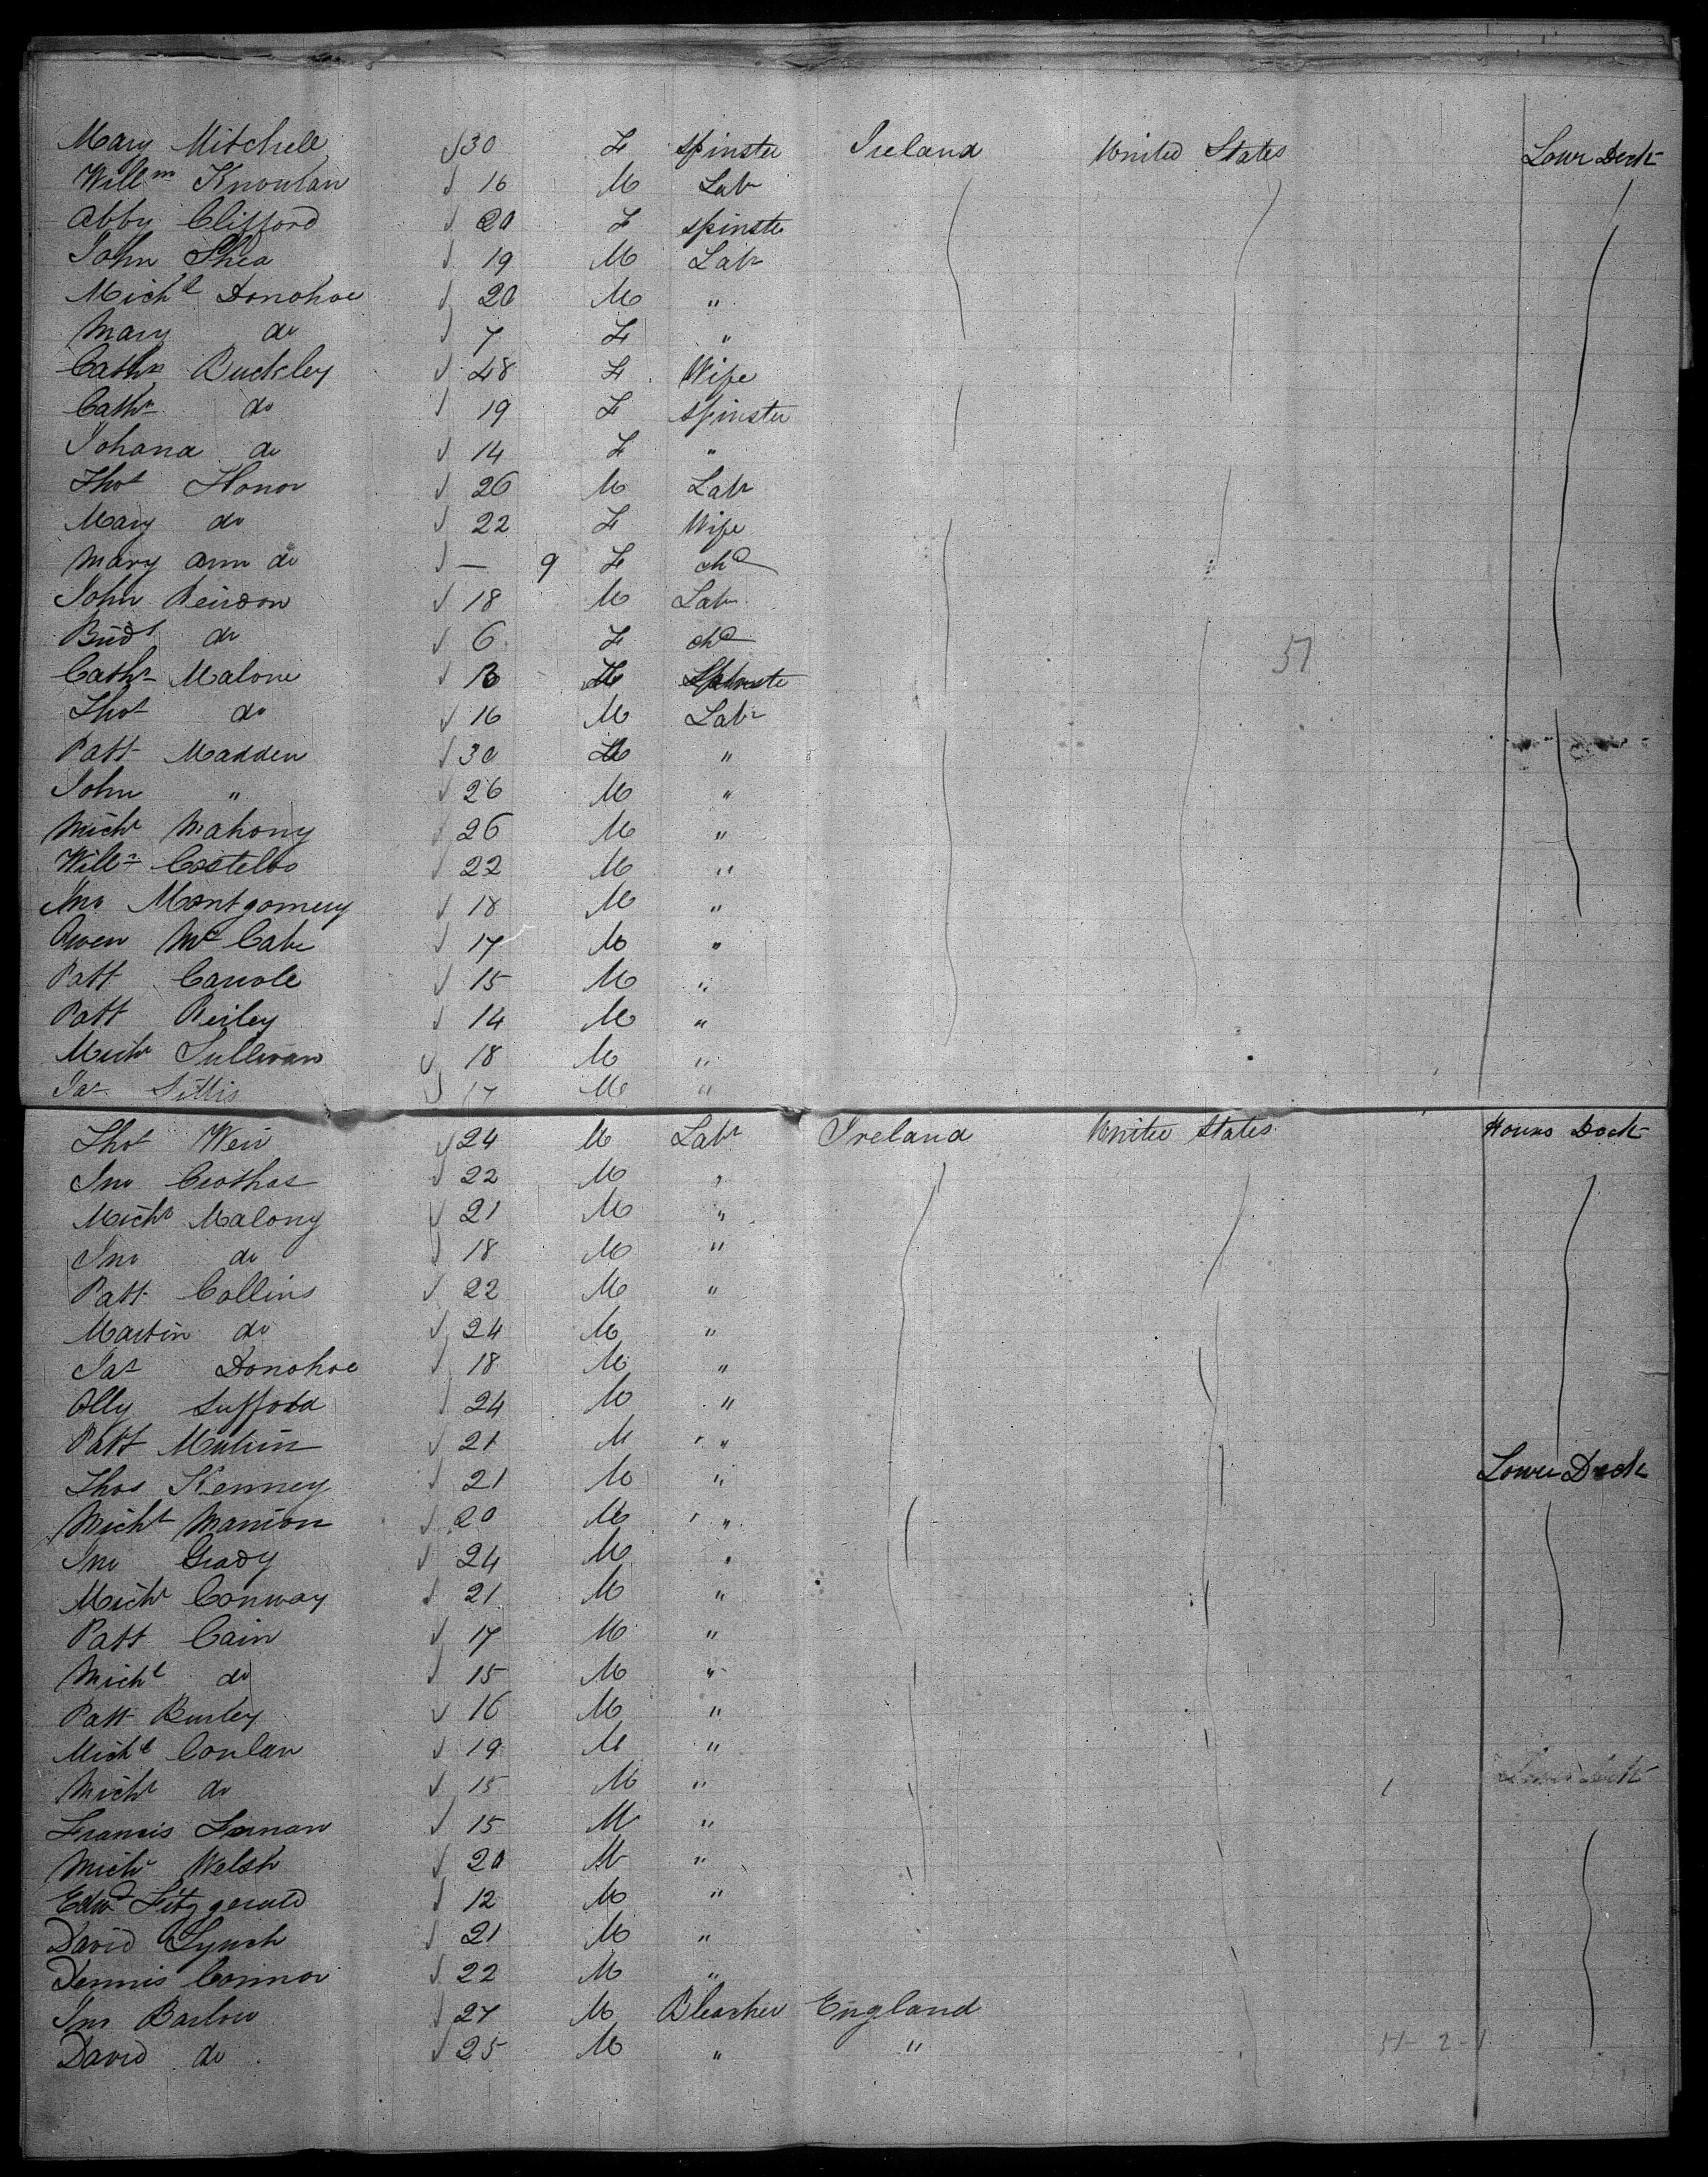 Mary Mitchell 30 F Spinster Ireland United States Lowr Deck
Willm Knowlan 16 M Labr
Abby Clifford 20 F Spinster
John Shea 19 M Labr
Michl Donohoe 20 M "
Mary do 7 F "
Cathn Buckley 48 F Wife
Cathn do 19 F Spinster
Johana do 14 F "
Thos Honor 26 M Labr
Mary do 22 F Wife
Mary Ann do — 9 F chd
John Reirdon 18 M Labr
Bridt do 6 F chd
Cathn Malone 13 Spinster
Thos do 16 M Labr
Patt Madden 30 M "
John " 26 M "
Michl Mahony 26 M "
Willm Costeloo 22 M "
Jno Montgomery 18 M "
Owen McCabe 17 M "
Patt Carrole 15 M "
Patt Reiley 14 M "
Michl Sullivan 18 M "
Jas 17 M "
Thos Weir 24 M Labr Ireland United States Hours Deck
Jno 22 M "
Michl Malony 21 M "
Jno do 18 M "
Patt Collins 22 M "
Martin do 24 M "
Jas Donohoe 18 M "
Olly 24 M "
Patt 21 M "
Thos Kenney 21 M " Lower Deck
Michl Manion 20 M "
Jno Grady 24 M "
Michl Conway 21 M "
Patt Cain 17 M "
Michl do 15 M "
Patt Burley 16 M "
Michl Conlan 19 M "
Michl do 15 M "
Francis 15 M "
Michl Welsh 20 M "
Edwd Fitzgerald 12 M "
David Lynch 21 M "
Dennis Connor 22 M "
Jno Barlow 27 M Bleacher England
David do 25 M " "
51
51-2-1